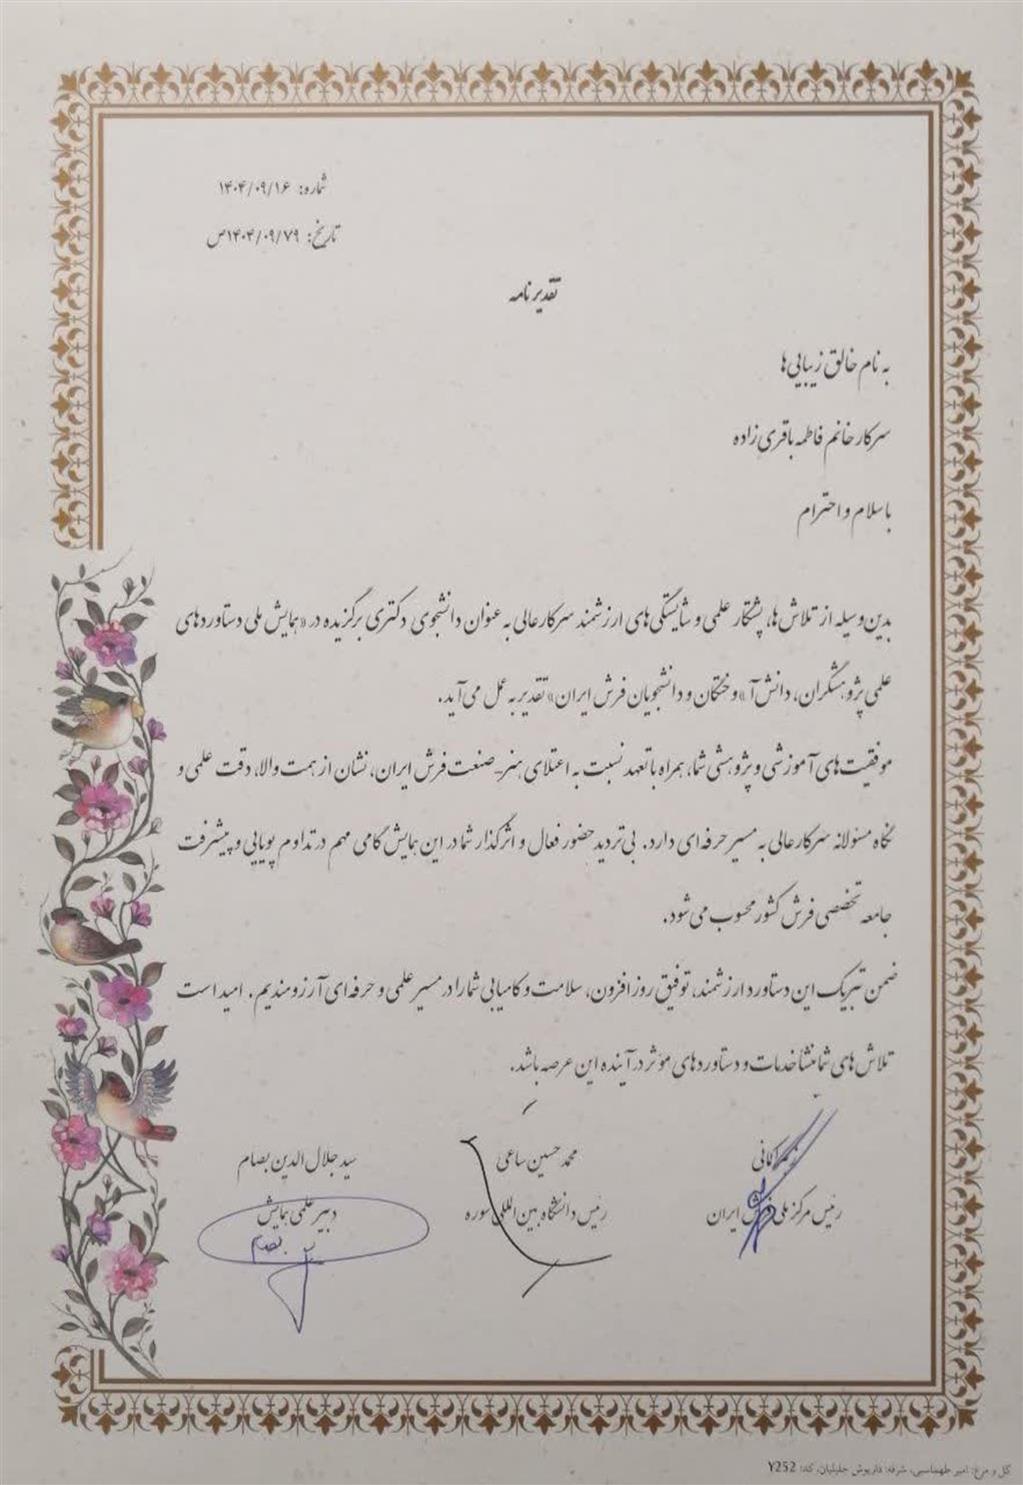 شماره: ۱۴۰۴/۰۹/۱۶
تاریخ: ۱۴۰۴/۰۹/۷۹ص
تقدیرنامه
به نام خالق زیبایی‌ها
سرکار خانم فاطمه باقری زاده
با سلام و احترام
بدین‌وسیله از تلاش‌ها، پشتکار علمی و شایستگی‌های ارزشمند سرکارعالی به عنوان دانشجوی دکتری برگزیده در «همایش ملی دستاوردهای
علمی پژوهشگران، دانش‌آ»وختگان و دانشجویان فرش ایران» تقدیر به عمل می‌آید.
موفقیت‌های آموزشی و پژوهشی شما، همراه با تعهد نسبت به اعتلای هنر-صنعت فرش ایران، نشان از همت والا، دقت علمی و
نگاه مسئولانه سرکارعالی به مسیر حرفه‌ای دارد. بی‌تردید حضور فعال و اثرگذار شما در این همایش گامی مهم در تداوم پویایی و پیشرفت
جامعه تخصصی فرش کشور محسوب می‌شود.
ضمن تبریک این دستاورد ارزشمند، توفیق روزافزون، سلامت و کامیابی شما را در مسیر علمی و حرفه‌ای آرزومندیم. امید است
تلاش‌های شما منشأ خدمات و دستاوردهای مؤثر در آینده این عرصه باشد.
محمدحسین ساعی
سید جلال‌الدین بصام
رئیس مرکز ملی فرش ایران
رئیس دانشگاه بین‌المللی سوره
دبیر علمی همایش
بصام
گل و مرغ: امیر طهماسبی، شرفه: داریوش جلیلیان، کد: Y252